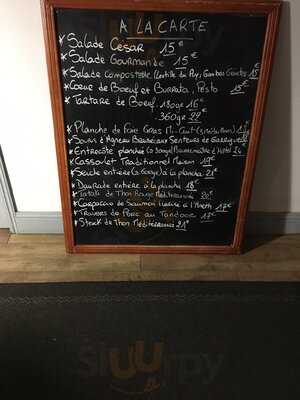 A LA CARTE
* Salade César 15€
* Salade Gourmande 15€
* Salade Compostelle (Lentille du Puy, Gambas, 15€
* Coeur de Boeuf et Burrata, Pesto 15€
* Tartare de Boeuf 180gr 16€
360gr 22€
* Planche de Foie Gras Mi-Cuit
* Souris d'Agneau Senteurs de Garrigue
* Entrecôte planchée
* Cassoulet Traditionnel Maison 19€
* Seiche entière à la plancha 21€
* Daurade entière à la plancha 18€
* Tataki de Thon Rouge Méditerranée 20€
* Carpaccio de Saumon à l'Aneth 17€
* Travers de Porc au Tandoori 17€
* Steak de Thon Méditerranée 21€
sluurpy